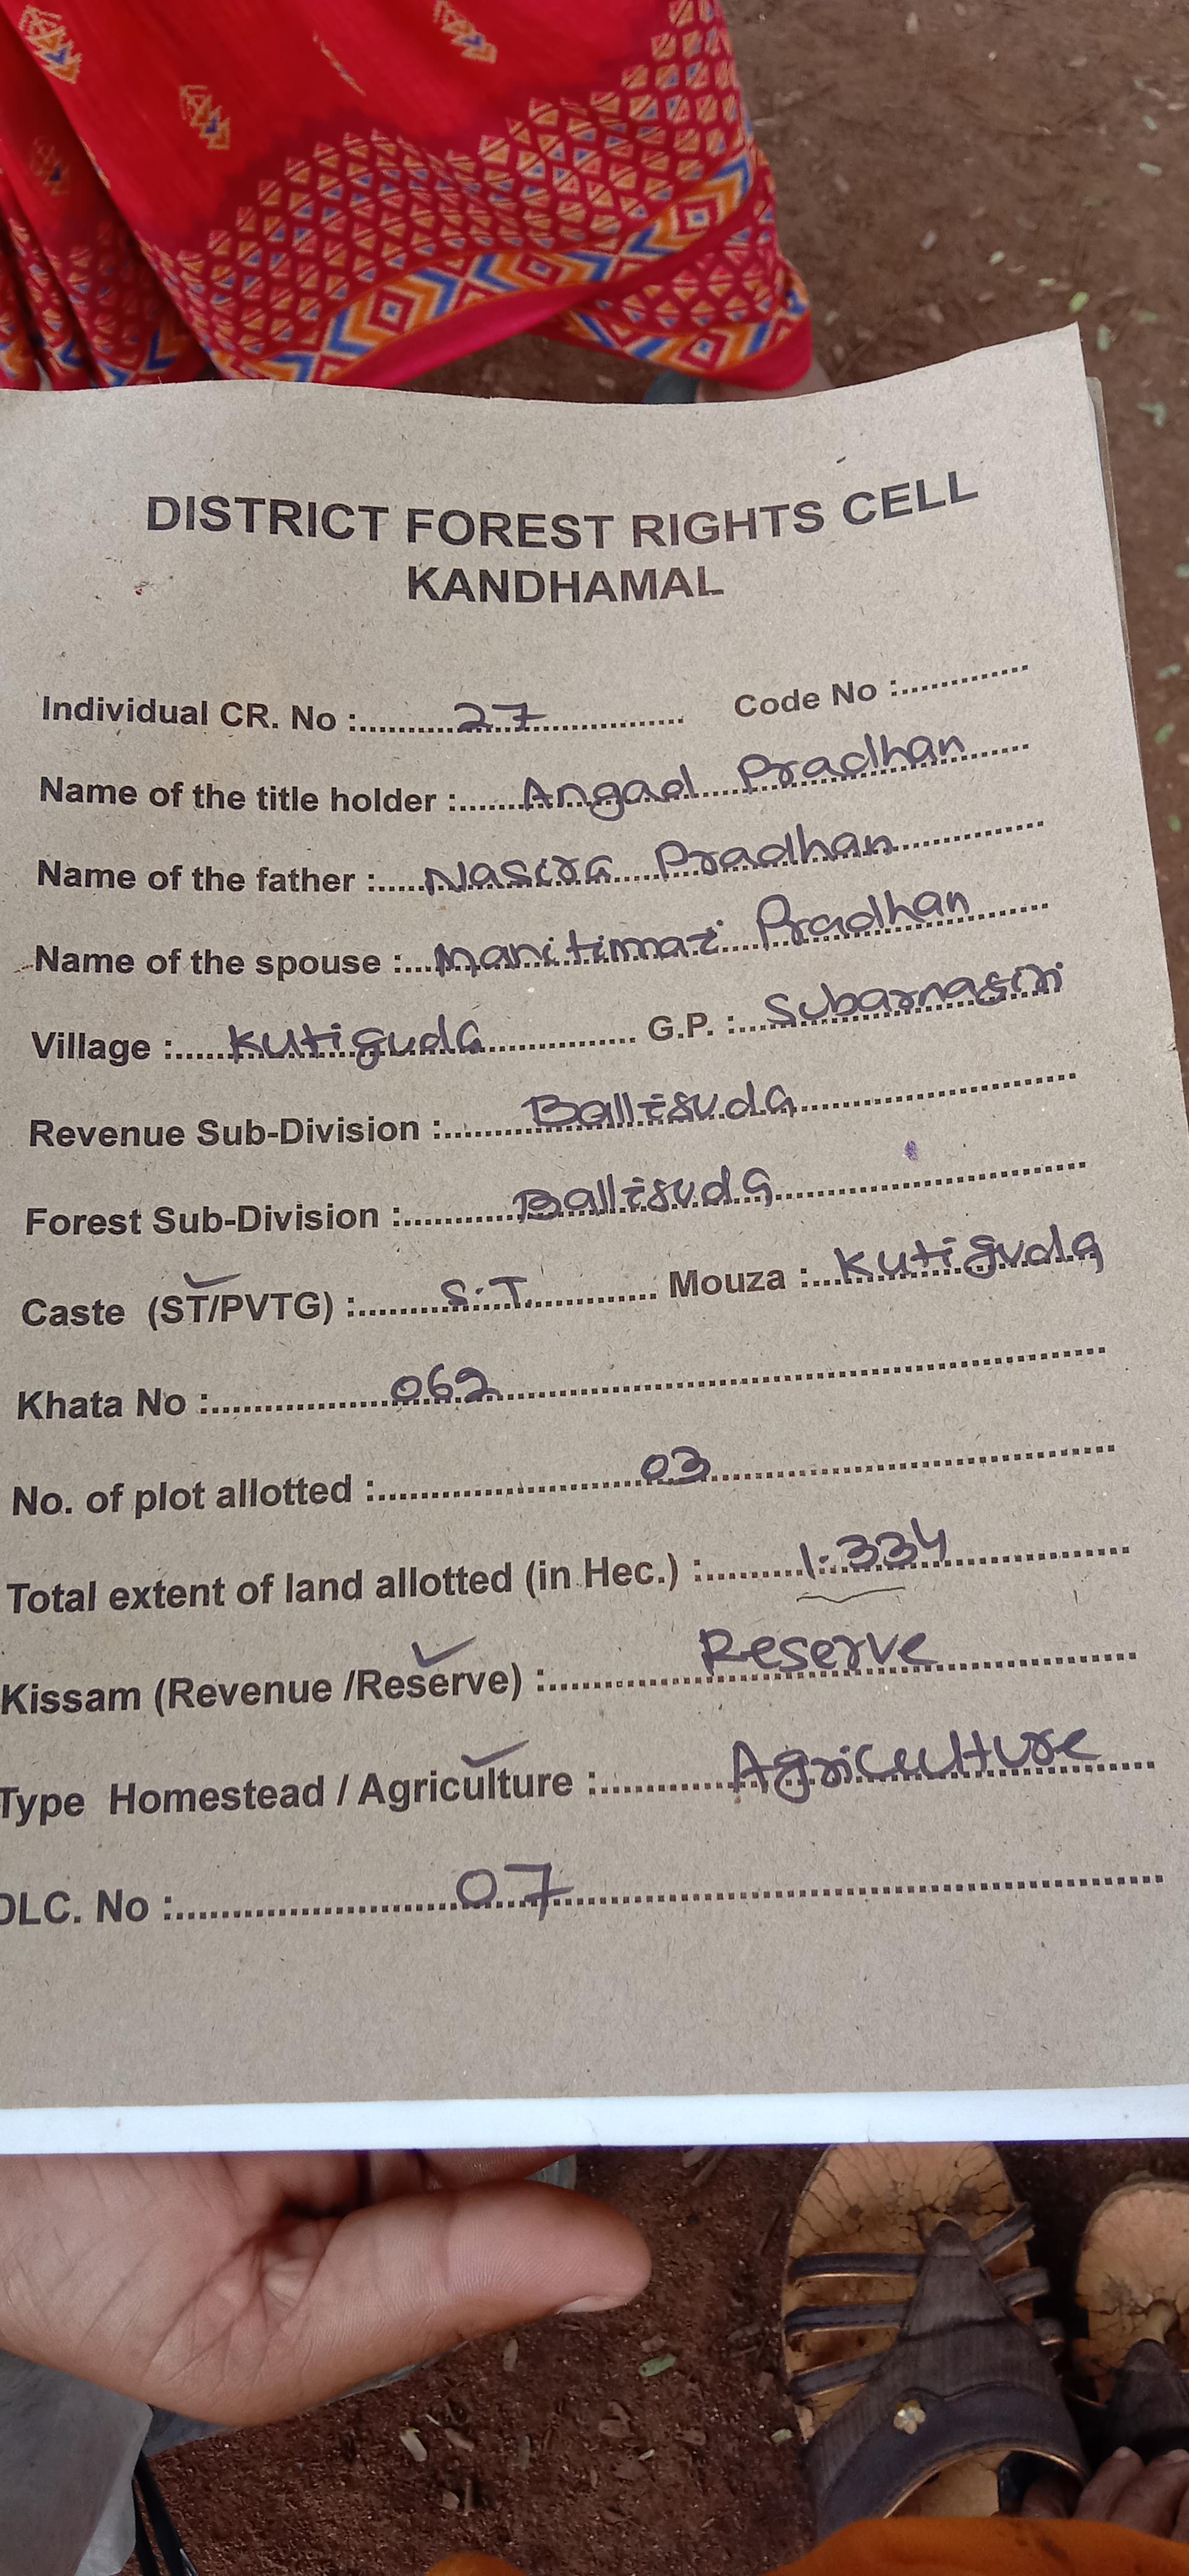 DISTRICT FOREST RIGHTS CELL
KANDHAMAL
Individual CR. No :..........27................ Code No :..............
Name of the title holder :......Angad Pradhan......
Name of the father :.....Nasira Pradhan..............
Name of the spouse :...Manitimai Pradhan.........
Village :......Kutiguda............... G.P. :...Subarnagiri
Revenue Sub-Division :.........Balliguda..............................
Forest Sub-Division :............Balliguda..............................
Caste (ST/PVTG) :.........S.T............. Mouza :...Kutiguda
Khata No :..................062..............................
No. of plot allotted :..............................03..............................
Total extent of land allotted (in Hec.) :..........1.334....................
Kissam (Revenue /Reserve) :...............Reserve....................
Type Homestead / Agriculture :............Agriculture......
DLC. No :..............................07..............................